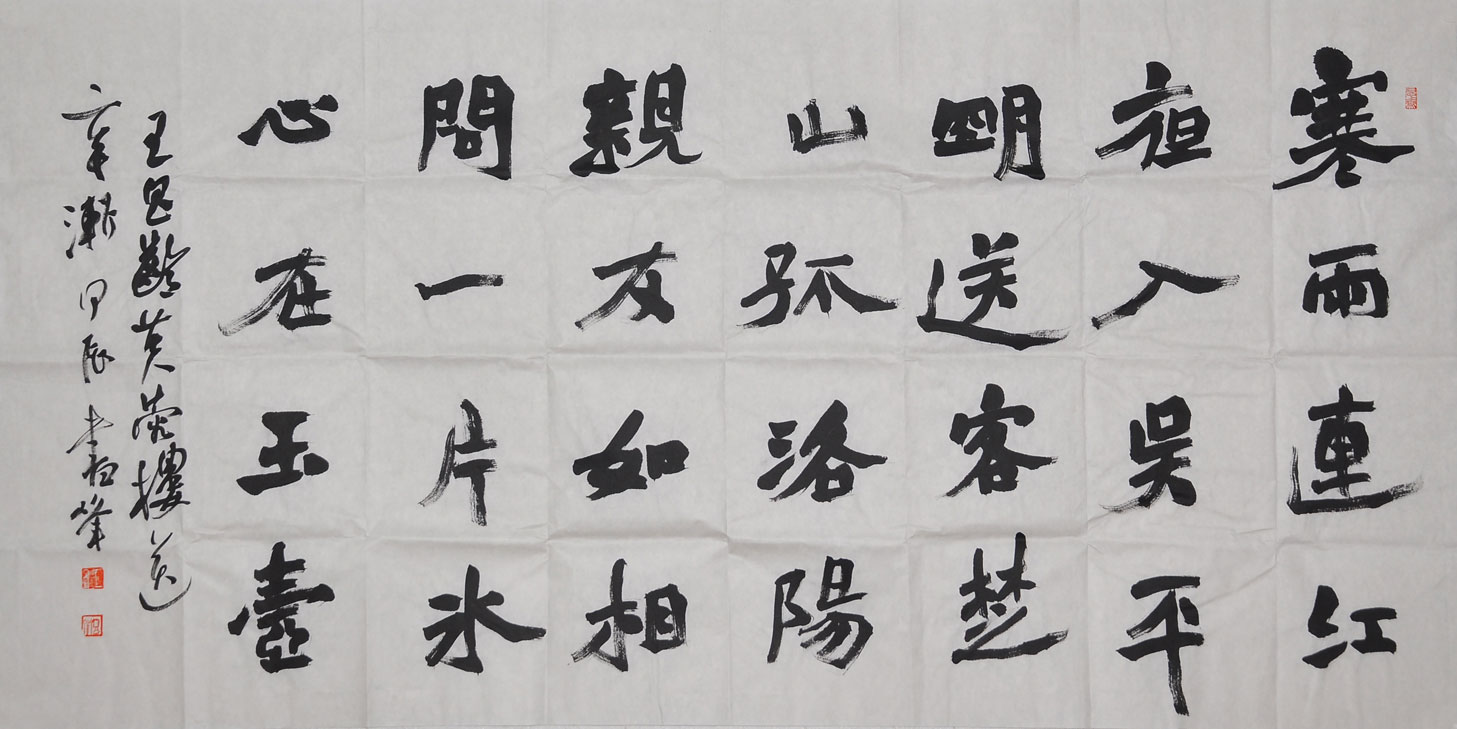 寒雨連江
夜入吳平
明送客楚
山孤洛陽
親友如相
問一片冰
心在玉壺
王昌齡芙蓉樓送
辛漸 甲辰 書